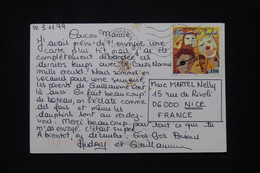 le 3.11.99
Coucou Mamie,
J'avais prévu de t'envoyer une
carte plus tôt mais j'ai été
complètement débordée ces
derniers temps avec
mille excuses! Nous sommes en
vacances pour une semaine
les parents de Guillaume
là aussi. On fait beaucoup
du bateau, on s'éclate comme
des fous et même les
dauphins sont au rendez-
vous. Merci beaucoup pour tout ce que tu
m'as envoyé, c'était super
A bientôt, en décembre. Gros Gros Bisous
Audrey et Guillaume
Mme MARTEL Nelly
15 rue de Rivoli
06000 NICE
FRANCE